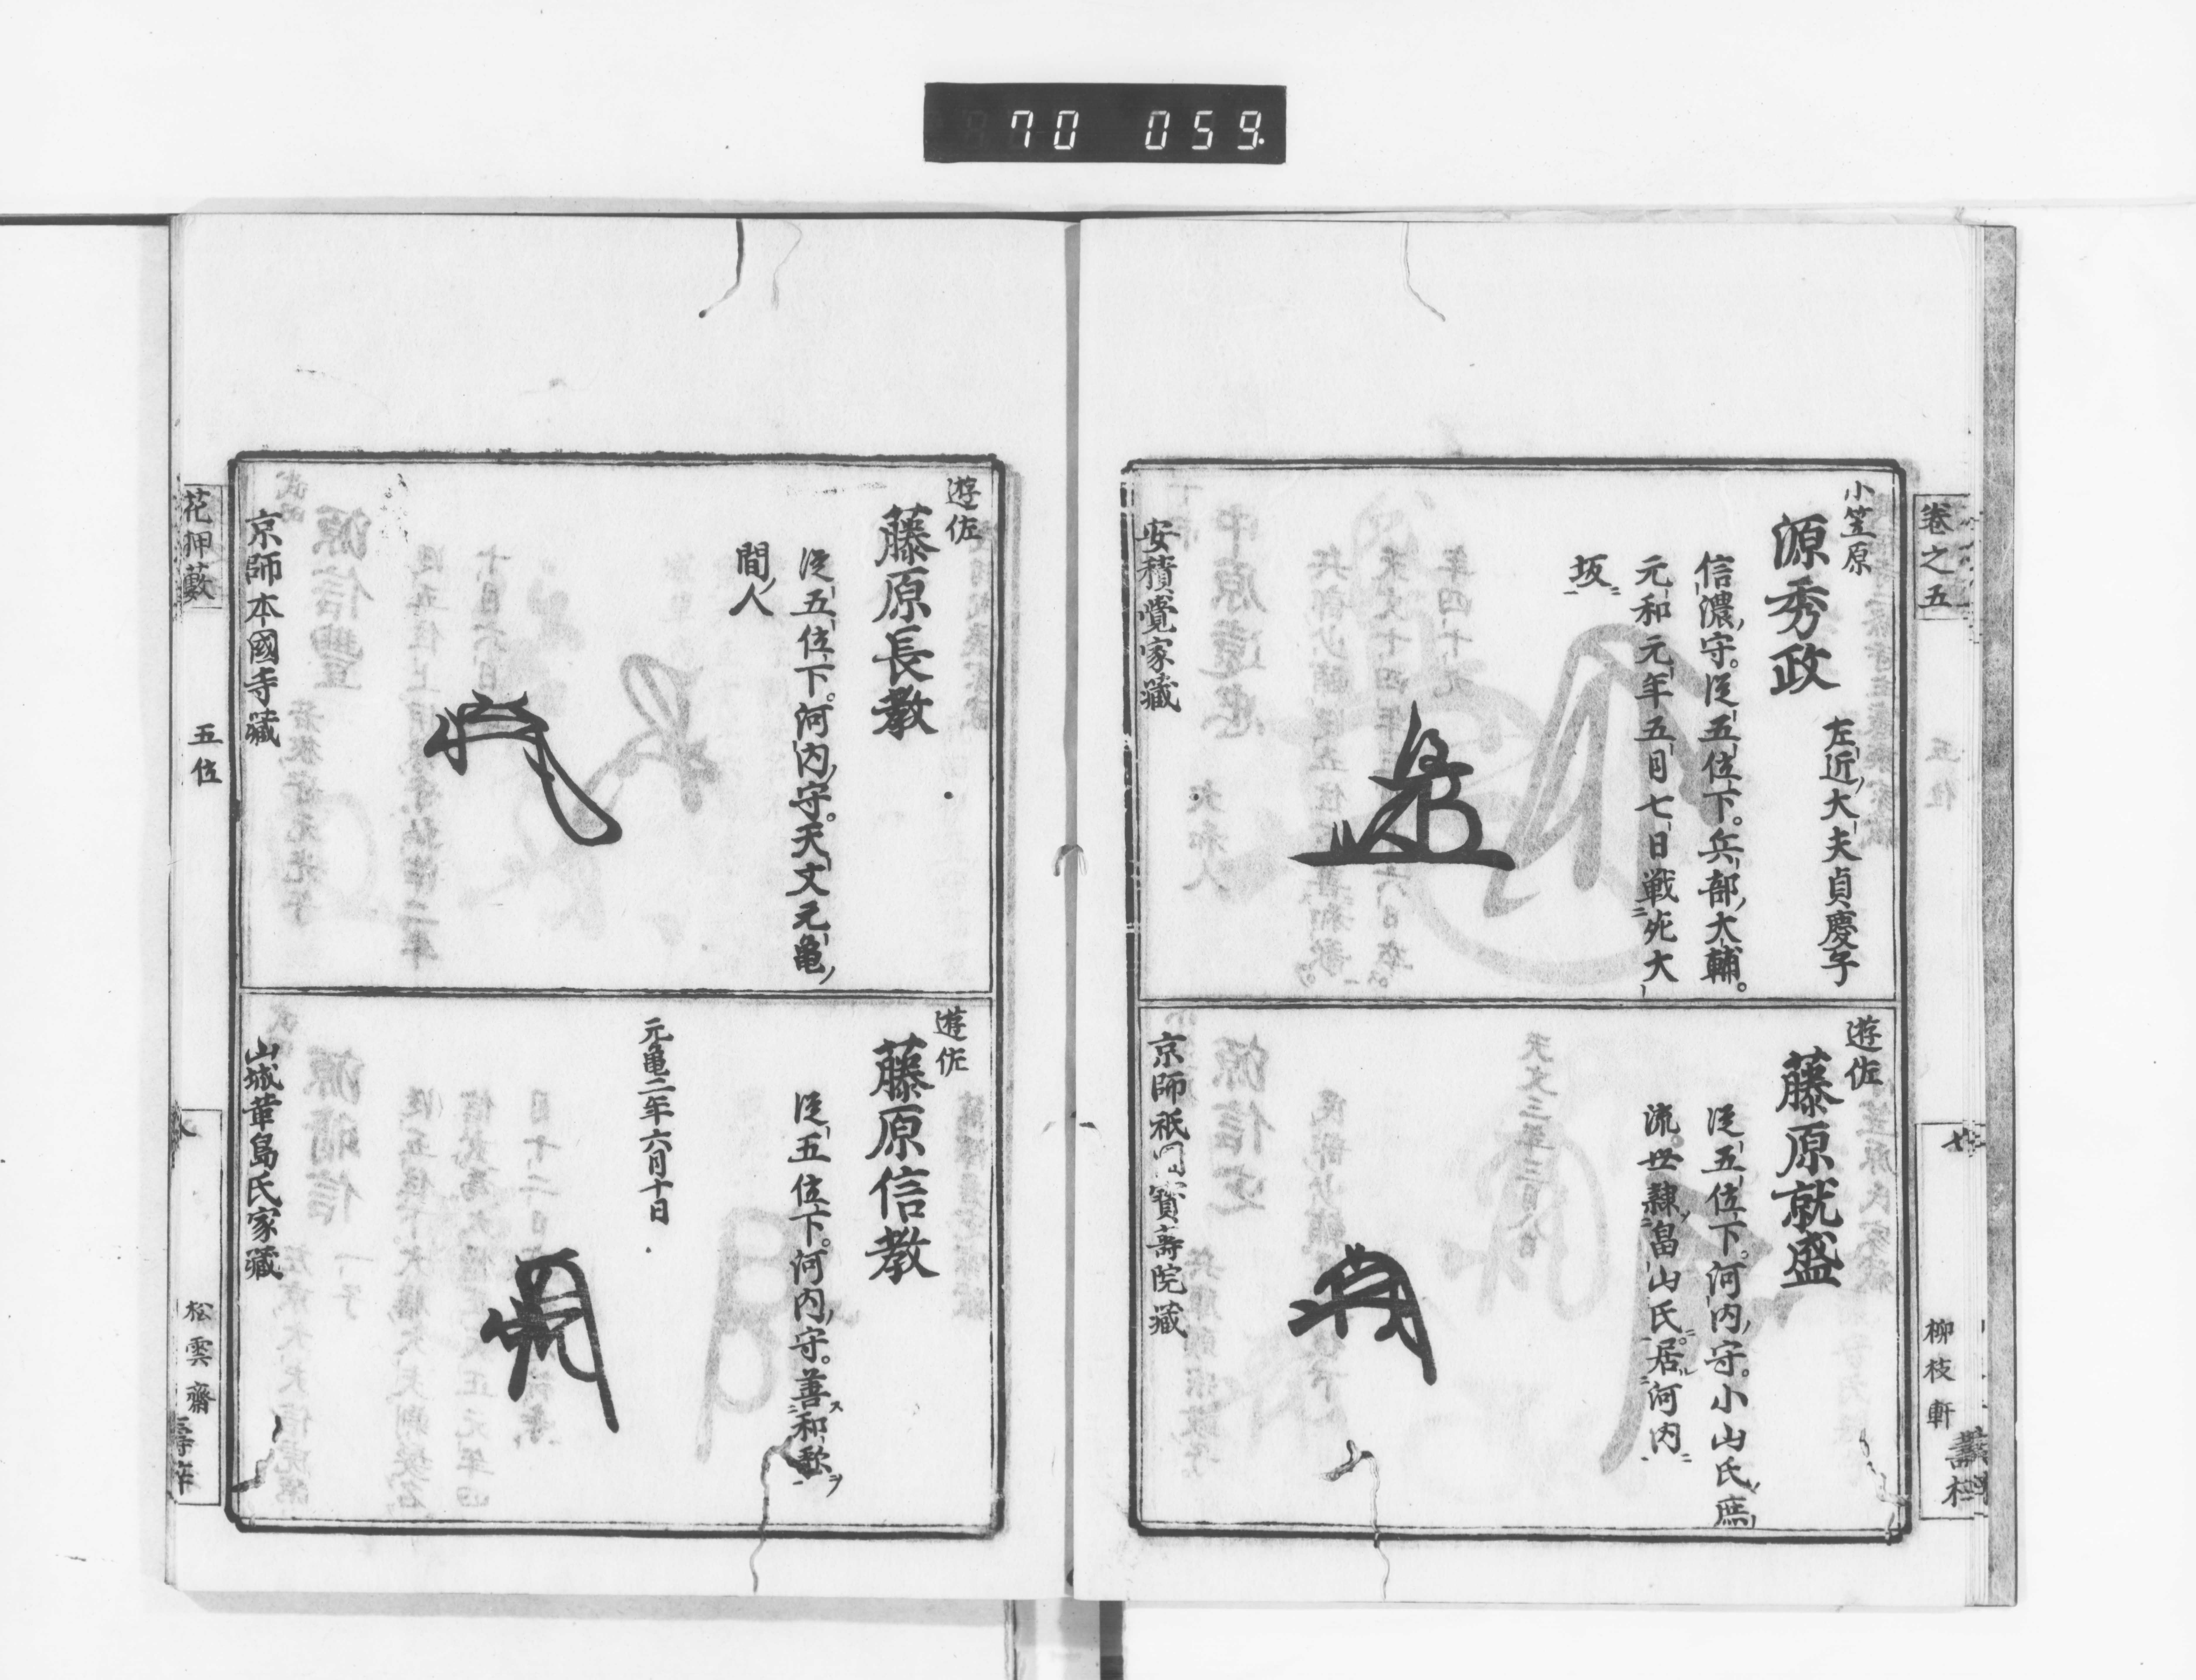 70 059
巻之五
柳枝軒
小笠原
源秀政
左近大夫貞慶子
信濃守。従五位下。兵部大輔。
元和元年五月七日戦死大
坂
安積覺家藏
遊佐
藤原就盛
従五位下。河内守。小山氏庶
流。世隷畠山氏。居河内
京師祇園寳壽院藏
遊佐
藤原長教
従五位下。河内守。天文元亀
間人
京師本國寺藏
遊佐
藤原信教
従五位下。河内守。善和歌
元亀二年六月十日
山城革島氏家藏
花押藪
五位
松雲齋